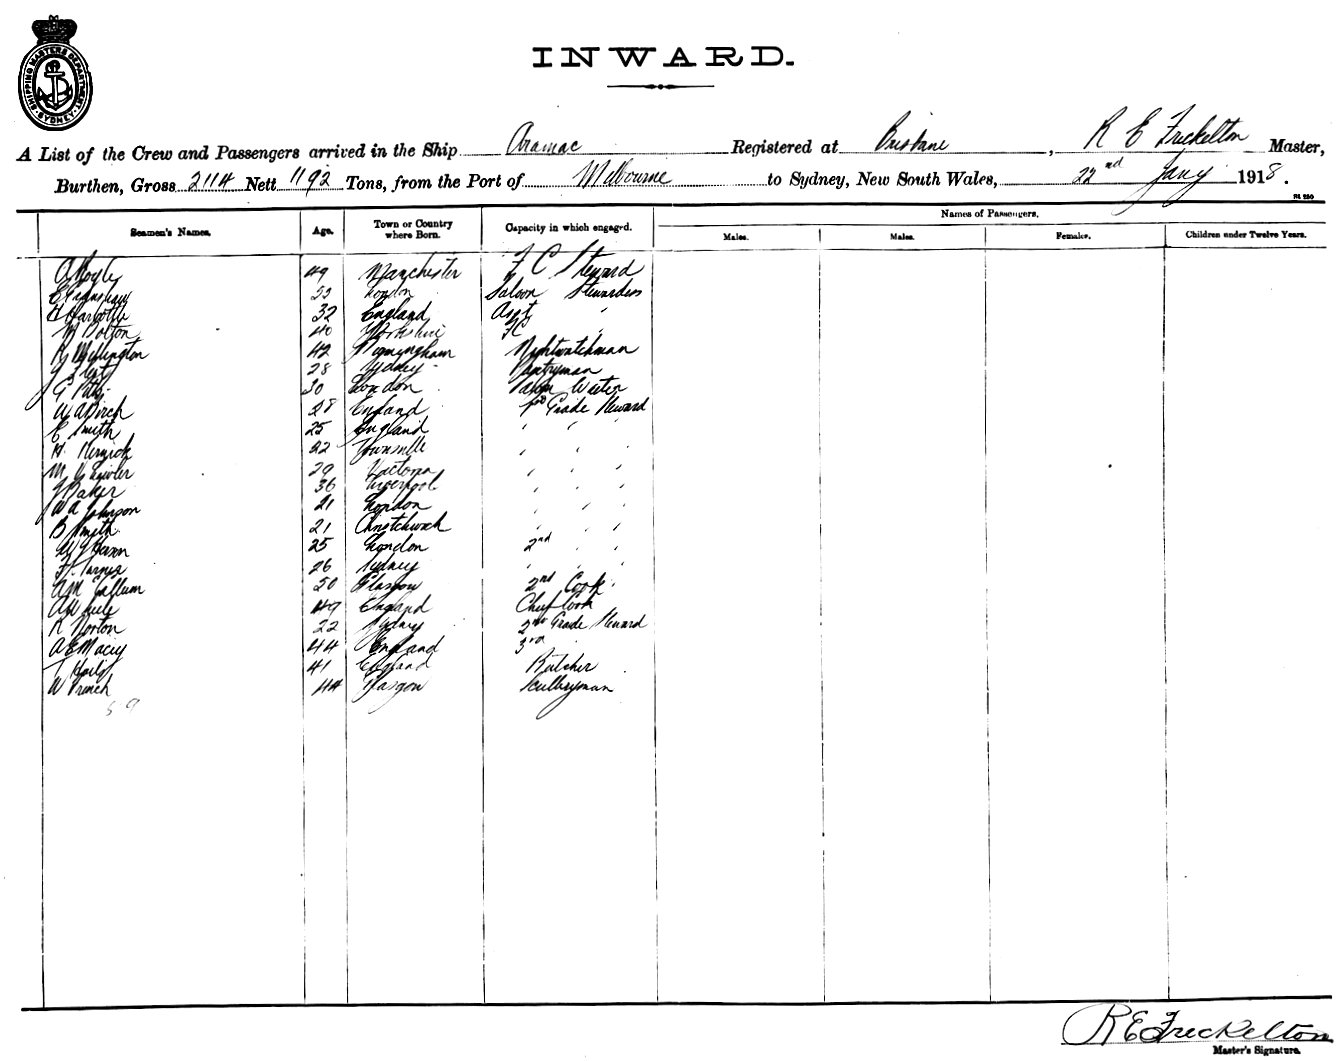 SHIPPING MASTERS DEPARTMENT SYDNEY
INWARD.
A List of the Crew and Passengers arrived in the Ship Aramac Registered at Brisbane, R E Freckelton Master,
Burthen, Gross 2114 Nett 1192 Tons, from the Port of Melbourne to Sydney, New South Wales, 22nd Jany 1918.
Names of Passengers.
Seamen's Names. Age. Town or Country where Born. Capacity in which engaged. Males. Males. Females. Children under Twelve Years.
A Boyle 49 Manchester F C Steward
London Saloon Stewardess
32 England Asst "
M Bolton 40 Yorkshire FC
R Wellington 42 Birmingham Nightwatchman
28 Sydney Pantryman
G 30 London Waiter
W A Birch 28 England Grade Steward
E Smith 25 England " " "
H 22 Townsville " " "
M 29 Victoria " " "
J Baker 36 Liverpool " " "
W A Johnson 21 London " " "
B Smith 21 Christchurch " " "
25 London 2nd " "
F Turner 26 Sydney " " "
A McCallum 50 Glasgow 2nd Cook
49 England Chief Cook
R Norton 22 Sydney 2nd Grade Steward
A E Macey 44 England 3rd
T 41 England Butcher
W French 44 Glasgow Sculleryman
59
R E Freckelton
Master's Signature.